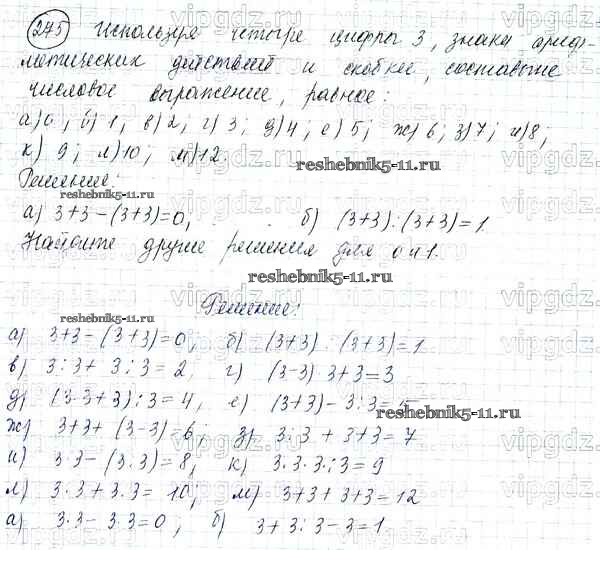 275 Используя четыре цифры 3, знаки ариф-
метических действий и скобки, составьте
числовое выражение, равное:
а) 0; б) 1; в) 2; г) 3; д) 4; е) 5; ж) 6; з) 7; и) 8;
к) 9; л) 10; м) 12.
reshebnik5-11.ru
Решение:
reshebnik5-11.ru
а) 3+3-(3+3)=0, б) (3+3):(3+3)=1.
Найдите другие решения для 0 и 1.
reshebnik5-11.ru
Решение:
а) 3+3-(3+3)=0; б) (3+3):(3+3)=1
в) 3:3+3:3=2, г) (3-3)·3+3=3
д) (3·3+3):3=4, е) (3+3)-3:3=5
reshebnik5-11.ru
ж) 3+3+(3-3)=6; з) 3:3+3+3=7
и) 3·3-(3:3)=8, к) 3·3·3:3=9
л) 3·3+3:3=10; м) 3+3+3+3=12
а) 3·3-3·3=0, б) 3+3:3-3=1
vipgdz.ru